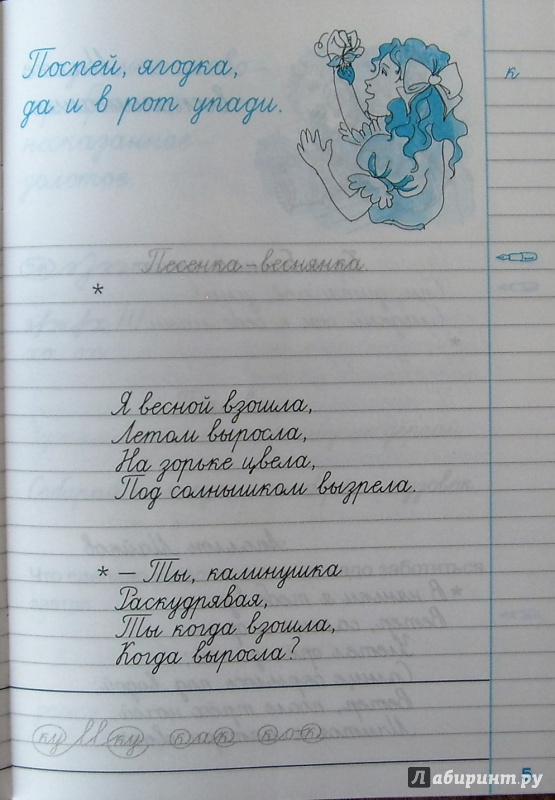 Поспей, ягодка,
да и в рот упади.
к
Песенка-веснянка.
*
Я весной взошла,
Летом выросла,
На зорьке цвела,
Под солнышком вызрела.
* – Ты, калинушка
Раскудрявая,
Ты когда взошла,
Когда выросла?
5
Лабиринт.ру